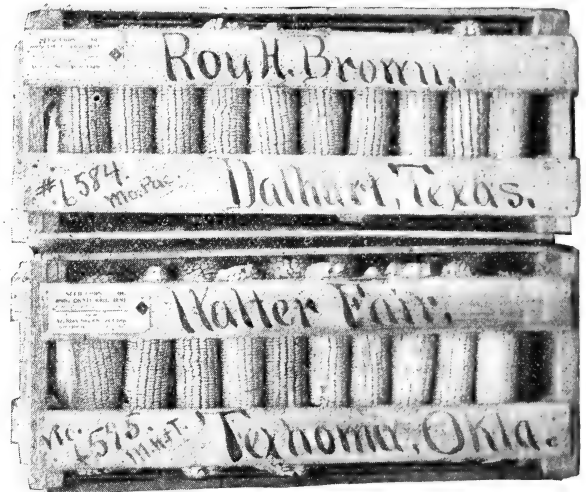 Roy H. Brown,
#6584.
Mo. Pac.
Dalhart, Texas.
Walter Fair,
No. 6595.
M.K.&T.
Texhoma, Okla.